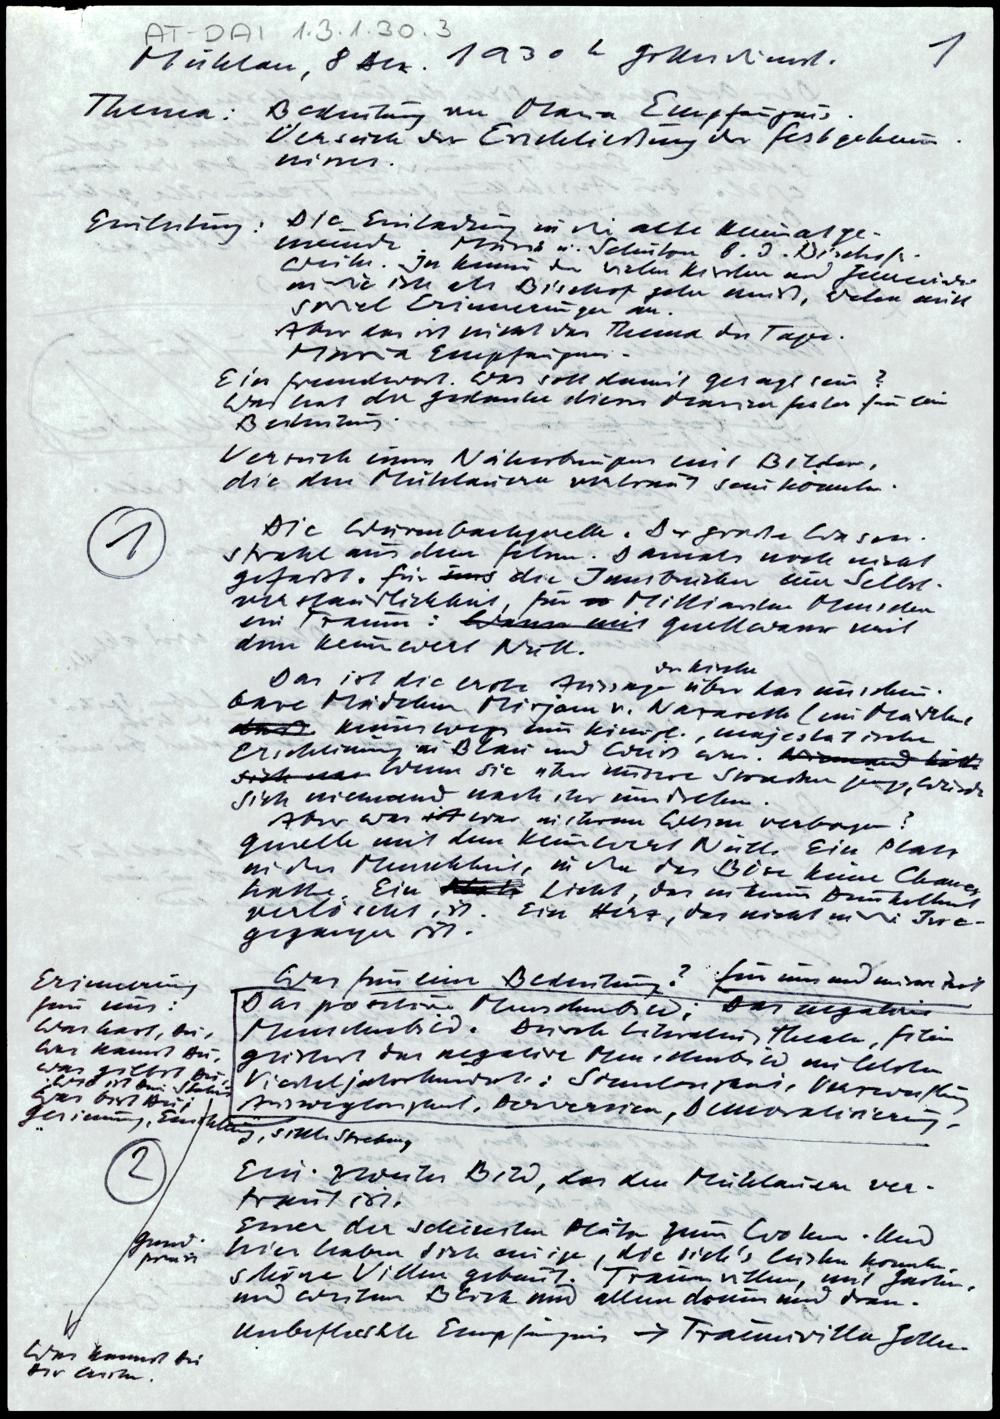 AT-DAI 1.3.1.30.3
Mühlau, 8 Dez. 1930 h Gottesdienst. 1
Thema: Bedeutung von Maria Empfängnis.
Versuch der Erschließung des Festgeheim-
nisses.
Einleitung: Die Einladung in die alte Heimatge-
meinde. Maria u. Schutzen b. d. Bischofs-
weihe. Ich kenne der vielen Kirchen und Gemeinden
in die ich als Bischof gehen muß, wehen mich
soviel Erinnerungen an.
Aber das ist nicht das Thema des Tages.
Maria Empfängnis.
Ein Fremdwort. Was soll damit gesagt sein?
Was hat der Gedanke dieses Marienfestes für eine
Bedeutung.
Versuch eines Näherbringens mit Bildern,
die den Mühlauern vertraut sein könnten.
1 Die Wurmbachquelle. Der große Wasser-
strahl aus dem Felsen. Damals noch nicht
gefaßt. Für uns die Innsbrucker eine Selbst-
verständlichkeit, für Milliarden Menschen
ein Traum: Quellwasser mit
dem Keimwert Null.
der Kirche
Das ist die erste Aussage über das unschein-
bare Mädchen Mirjam v. Nazareth (ein Mädchen
das keineswegs eine königl., majestätische
Erscheinung in Blau und Weiß war. Niemand hätte
sich Wenn sie über unsere Straßen ging, würde
sich niemand nach ihr umdrehen.
Aber was ist war in ihrem Wesen verborgen?
Quelle mit dem Keimwert Null. Ein Platz
in der Menschheit, in der das Böse keine Chance
hatte. Ein Licht, das in keine Dunkelheit
verlöscht ist. Ein Herz, das nicht in die Irre
gegangen ist.
Was für eine Bedeutung? Für uns und unsere Zeit
Das positive Menschenbild: Das negative
Menschenbild. Durch Literatur, Theater, Film
geistert das negative Menschenbild im letzten
Vierteljahrhundert: Sinnlosigkeit, Verzweiflung
Ausweglosigkeit, Perversion, Demoralisierung.
Erinnerung
für uns:
Was hast, du,
Was kannst du,
was giltst du,
was bist du:
Gesinnung, Einstellung, sittl. Strebung
2 Ein zweites Bild, das den Mühlauern ver-
traut ist.
Einer der schönsten Plätze zum Wohnen. Und
hier haben sich einige, die sich's leisten konnten,
schöne Villen gebaut. Traumvillen, mit Garten,
und weitem Blick und allem drum und dran.
Unbefleckte Empfängnis → Traumvilla Gottes.
Was kannst du